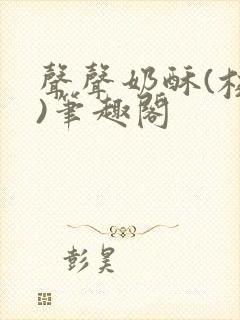 聲聲奶酥(校
)筆趣閣
彭昊